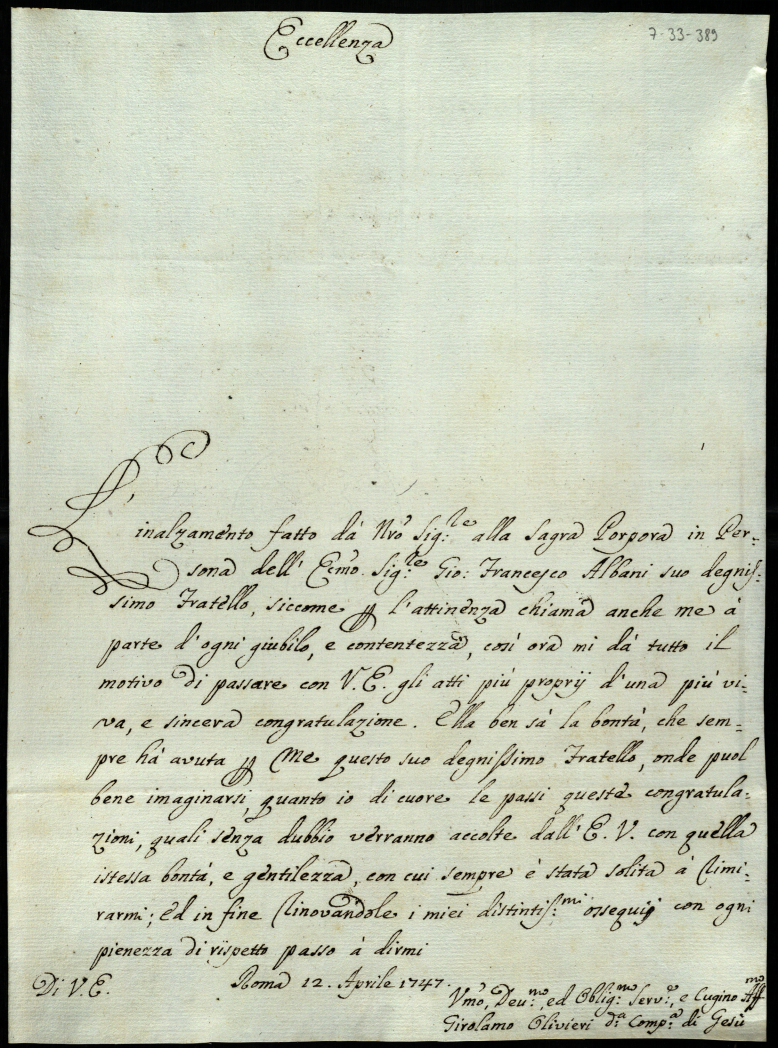 Eccellenza
7-33-389
L'inalzamento fatto dà Nrõ Sig:re alla Sagra Porpora in Per-
sona dell' Ecmo. Sig:re Gio: Francesco Albani suo degnis-
simo Fratello, siccome ꝑ l'attinenza chiama anche me à
parte d'ogni giubilo, e contentezza, così ora mi dà tutto il
motivo di passare con V.E. gli atti più proprij d'una più vi-
va, e sincera congratulazione. Ella ben sà la bontà, che sem-
pre hà avuta ꝑ me questo suo degnissimo Fratello, onde puol
bene imaginarsi, quanto io di cuore le passi queste congratula-
zioni, quali senza dubbio verranno accolte dall' E.V. con quella
istessa bontà, e gentilezza, con cui sempre è stata solita à rimi-
rarmi; ed in fine rinovandole i miei distintis:mi ossequij con ogni
pienezza di rispetto passo à dirmi
Di V.E.
Roma 12. Aprile 1747.
Vmõ, Deu:mo, ed Oblig:mo Serv:e, e Cugino Aff:mo
Girolamo Olivieri d:a Comp:a di Gesù